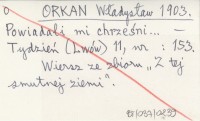 ORKAN Władysław 1903.
Powiadali mi chrześni... —
Tydzień (Lwów) 11, nr : 153.
Wiersz ze zbioru „Z tej
smutnej ziemi".